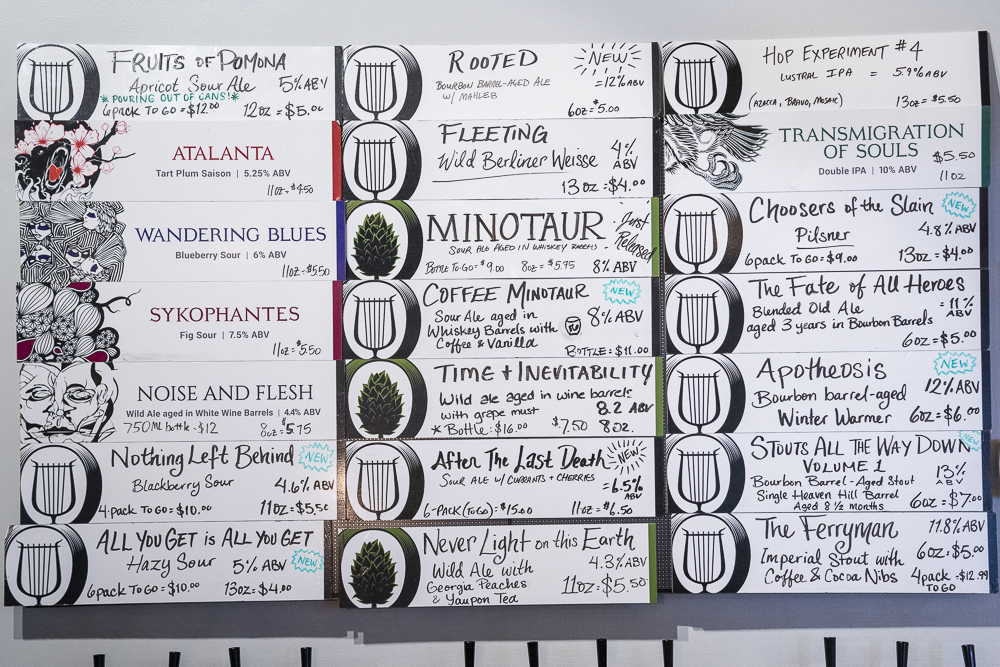 FRUITS OF POMONA
Apricot Sour Ale 5% ABV
*POURING OUT OF CANS!*
6pack TO GO = $12.00 12oz = $5.00
ATALANTA
Tart Plum Saison | 5.25% ABV
11oz = $4.50
WANDERING BLUES
Blueberry Sour | 6% ABV
11oz = $5.50
SYKOPHANTES
Fig Sour | 7.5% ABV
11oz = $5.50
NOISE AND FLESH
Wild Ale aged in White Wine Barrels | 4.4% ABV
750ML bottle = $12 8oz = $5.75
Nothing Left Behind NEW
Blackberry Sour 4.6% ABV
4-pack TO GO = $10.00 11oz = $5.50
ALL YOU GET is ALL YOU GET
Hazy Sour 5% ABV NEW
6pack TO GO = $10.00 13oz = $4.00
ROOTED NEW
BOURBON BARREL-AGED ALE = 12% ABV
W/ MAHLEB
6oz = $5.00
FLEETING
Wild Berliner Weisse 4% ABV
13oz = $4.00
MINOTAUR Just Released
SOUR ALE AGED IN WHISKEY BARRELS -
Bottle To-Go = $9.00 8oz = $5.75 8% ABV
COFFEE MINOTAUR NEW
Sour Ale aged in
Whiskey Barrels with 8% ABV
Coffee & Vanilla
BOTTLE = $11.00
TIME + INEVITABILITY
Wild ale aged in wine barrels
with grape must 8.2 ABV
* Bottle: $16.00 $7.50 8oz.
After The Last Death NEW
SOUR ALE W/ CURRANTS + CHERRIES = 6.5% ABV
6-PACK (TO GO) = $15.00 11oz = $6.50
Never Light on this Earth
Wild Ale with 4.3% ABV
Georgia Peaches
& Yaupon Tea 11oz = $5.50
HOP EXPERIMENT #4
LUSTRAL IPA = 5.9% ABV
(AZACCA, BRAVO, MOSAIC) 13oz = $5.50
TRANSMIGRATION
OF SOULS $5.50
Double IPA | 10% ABV 11oz
Choosers of the Slain NEW
Pilsner 4.8% ABV
6pack TO GO = $9.00 13oz = $4.00
The Fate of All Heroes
Blended Old Ale = 11% ABV
aged 3 years in Bourbon Barrels
6oz = $5.00
Apotheosis NEW
Bourbon barrel-aged 12% ABV
Winter Warmer 6oz = $6.00
STOUTS ALL THE WAY DOWN NEW
VOLUME 1 13% ABV
Bourbon Barrel-Aged Stout
Single Heaven Hill Barrel
Aged 8 1/2 months 6oz = $7.00
The Ferryman 11.8% ABV
Imperial Stout with 6oz = $5.00
Coffee & Cocoa Nibs 4pack = $12.99
TO GO